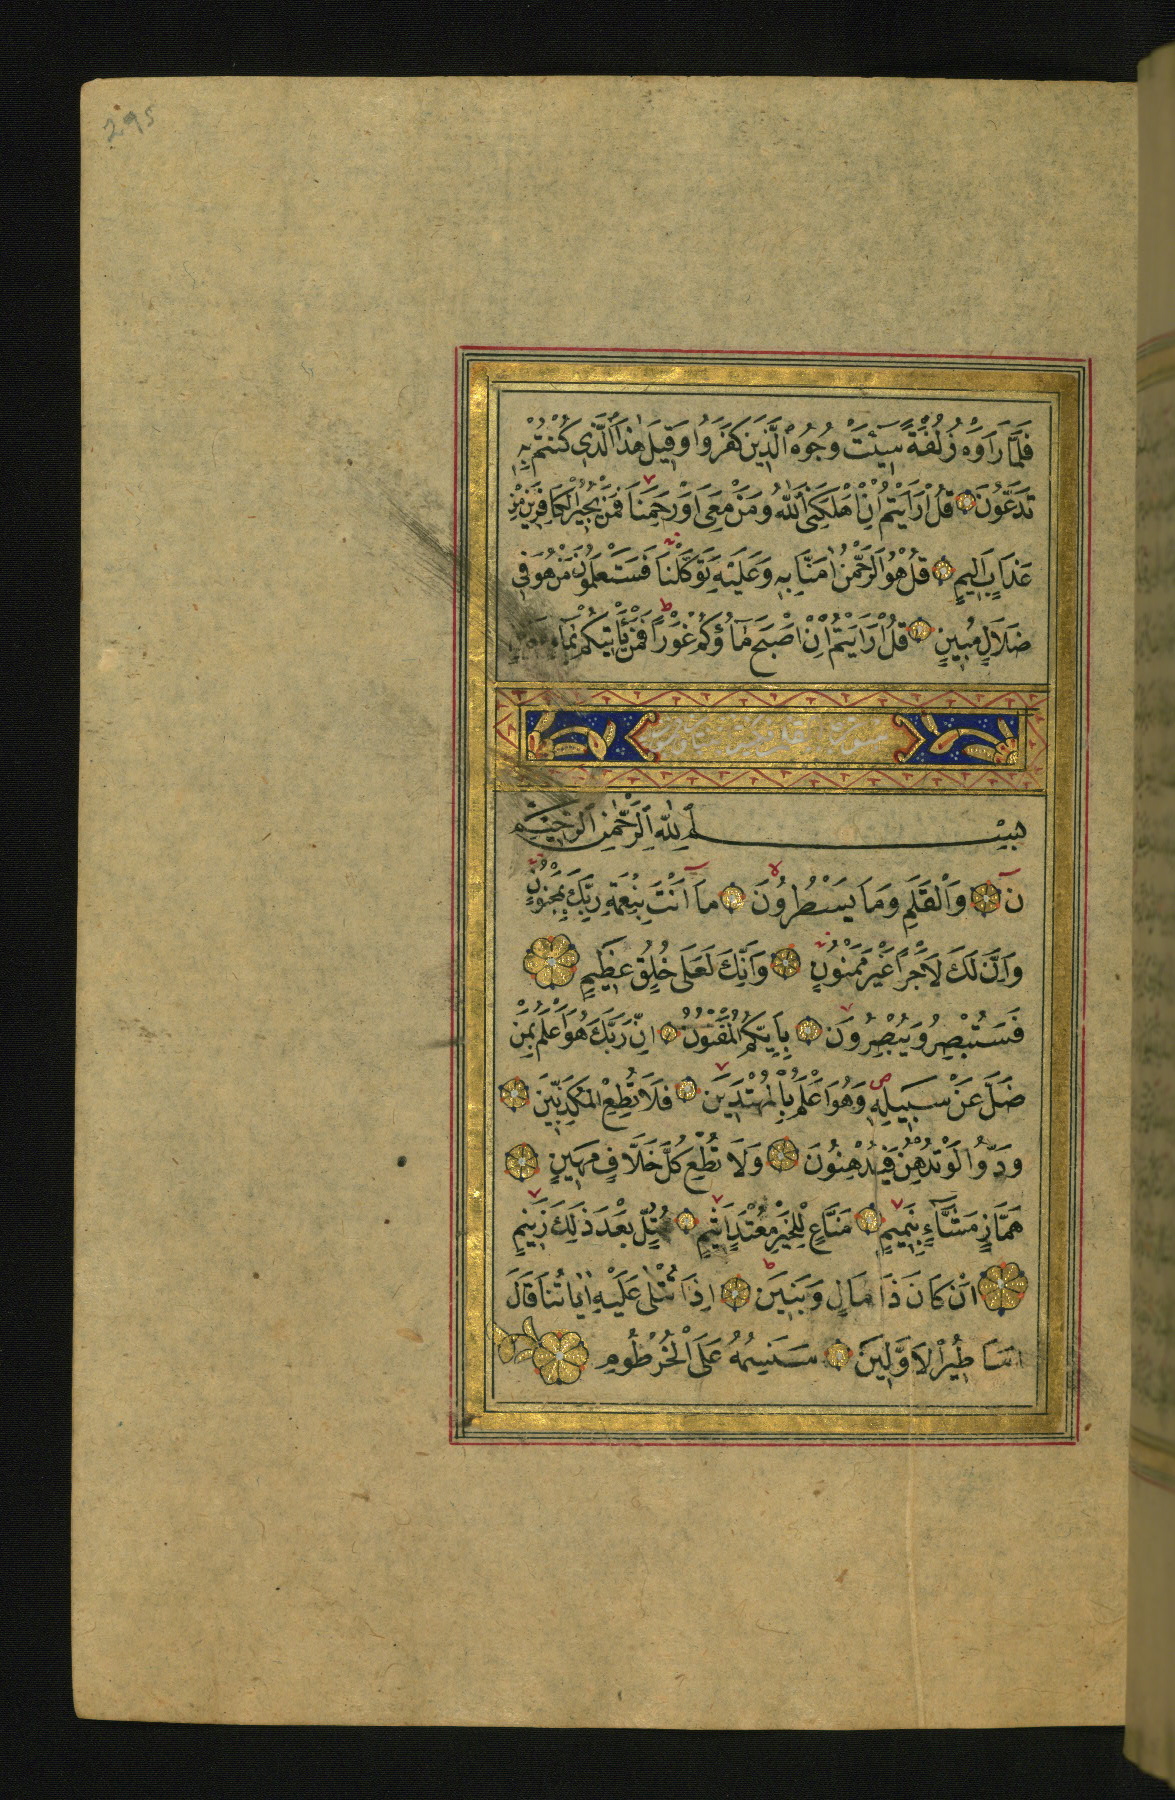 295
فَلَمَّا رَاَوْهُ زُلْفَةً سِيٓـَٔتْ وُجُوهُ الَّذِينَ كَفَرُوا وَقِيلَ هٰذَا الَّذِي كُنْتُمْ بِهِ
تَدَّعُونَ قُلْ اَرَاَيْتُمْ اِنْ اَهْلَكَنِيَ اللّٰهُ وَمَنْ مَعِيَ اَوْ رَحِمَنَا فَمَنْ يُجِيرُ الْكَافِرِينَ مِنْ
عَذَابٍ اَلِيمٍ قُلْ هُوَ الرَّحْمٰنُ اٰمَنَّا بِهِ وَعَلَيْهِ تَوَكَّلْنَا فَسَتَعْلَمُونَ مَنْ هُوَ فِي
ضَلَالٍ مُبِينٍ قُلْ اَرَاَيْتُمْ اِنْ اَصْبَحَ مَآؤُكُمْ غَوْرًا فَمَنْ يَأْتِيكُمْ بِمَآءٍ
سورة
بِسْمِ اللّٰهِ الرَّحْمٰنِ الرَّحِيمِ
نٓ وَالْقَلَمِ وَمَا يَسْطُرُونَ مَا اَنْتَ بِنِعْمَةِ رَبِّكَ بِمَجْنُونٍ
وَاِنَّ لَكَ لَاَجْرًا غَيْرَ مَمْنُونٍ وَاِنَّكَ لَعَلَى خُلُقٍ عَظِيمٍ
فَسَتُبْصِرُ وَيُبْصِرُونَ بِاَيِّكُمُ الْمَفْتُونُ اِنَّ رَبَّكَ هُوَ اَعْلَمُ بِمَنْ
ضَلَّ عَنْ سَبِيلِهِ وَهُوَ اَعْلَمُ بِالْمُهْتَدِينَ فَلَا تُطِعِ الْمُكَذِّبِينَ
وَدُّوا لَوْ تُدْهِنُ فَيُدْهِنُونَ وَلَا تُطِعْ كُلَّ حَلَّافٍ مَهِينٍ
هَمَّازٍ مَشَّآءٍ بِنَمِيمٍ مَنَّاعٍ لِلْخَيْرِ مُعْتَدٍ اَثِيمٍ عُتُلٍّ بَعْدَ ذٰلِكَ زَنِيمٍ
اَنْ كَانَ ذَا مَالٍ وَبَنِينَ اِذَا تُتْلٰى عَلَيْهِ اٰيَاتُنَا قَالَ
اَسَاطِيرُ الْاَوَّلِينَ سَنَسِمُهُ عَلَى الْخُرْطُومِ